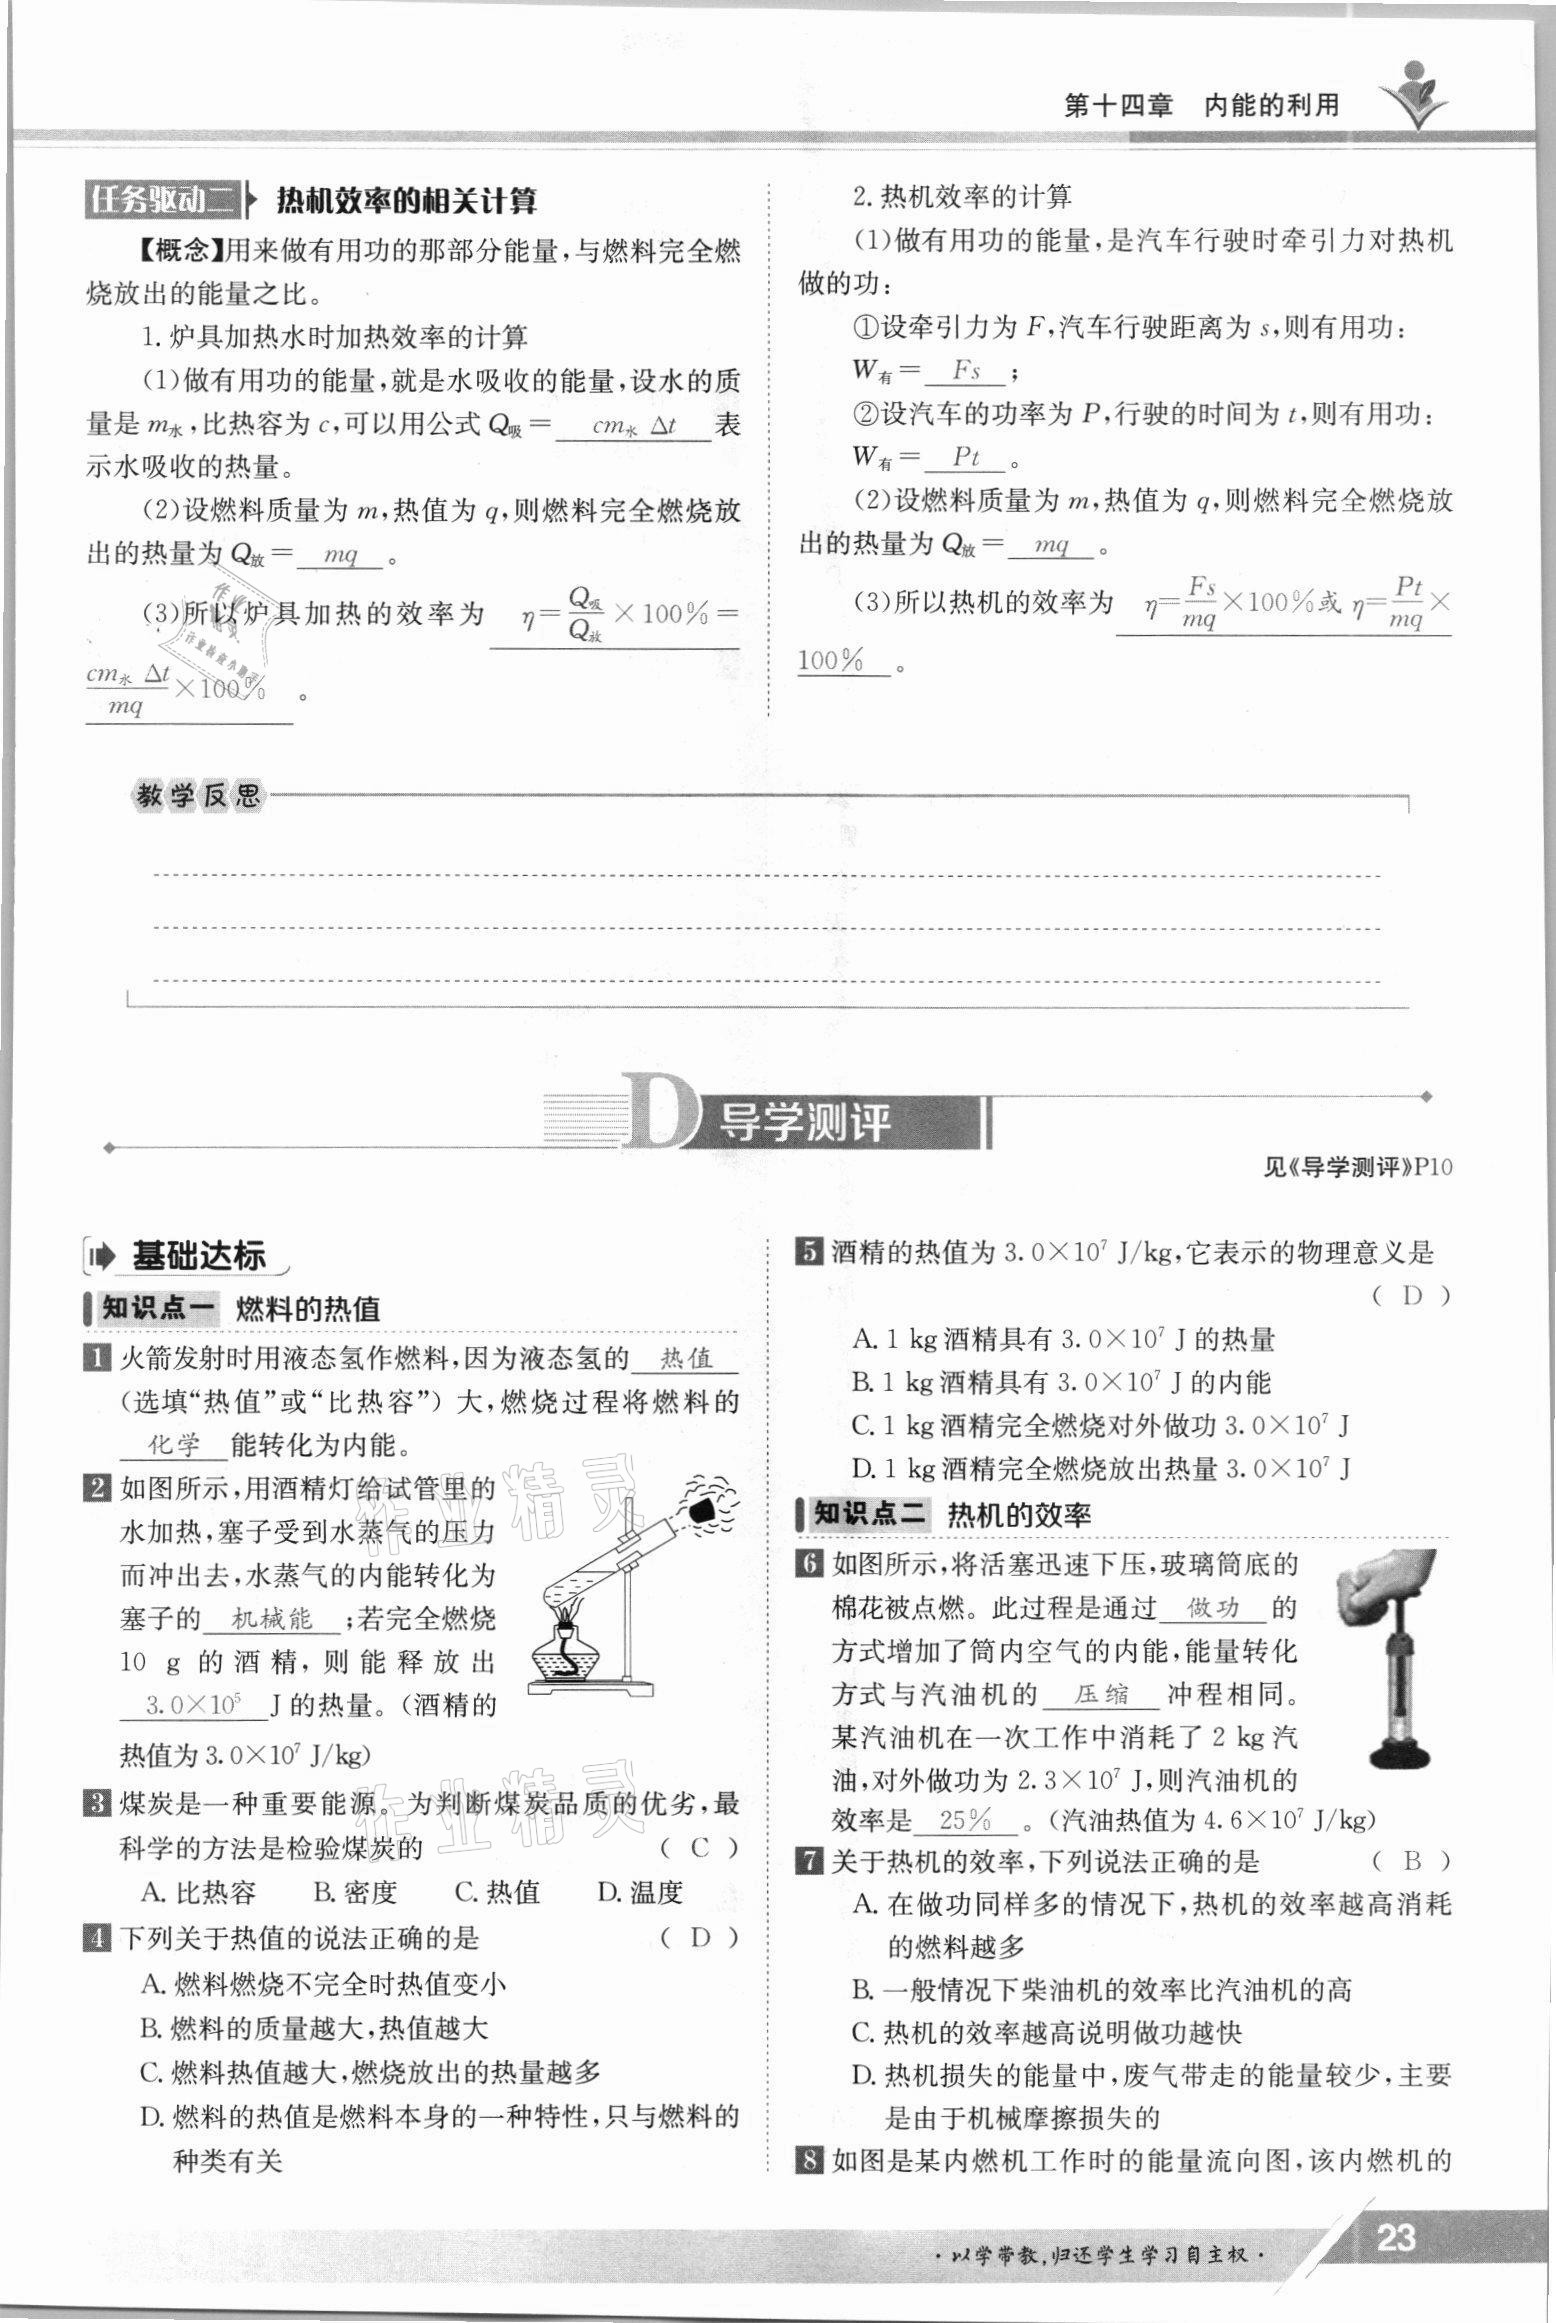 第十四章　内能的利用
任务驱动二　热机效率的相关计算
【概念】用来做有用功的那部分能量,与燃料完全燃
烧放出的能量之比。
1. 炉具加热水时加热效率的计算
(1)做有用功的能量,就是水吸收的能量,设水的质
量是 m水,比热容为 c,可以用公式 Q吸= cm水 Δt 表
示水吸收的热量。
(2)设燃料质量为 m,热值为 q,则燃料完全燃烧放
出的热量为 Q放= mq 。
(3)所以炉具加热的效率为 η=Q吸/Q放×100%=
cm水 Δt/mq×100% 。
2. 热机效率的计算
(1)做有用功的能量,是汽车行驶时牵引力对热机
做的功:
①设牵引力为 F,汽车行驶距离为 s,则有用功:
W有= Fs ;
②设汽车的功率为 P,行驶的时间为 t,则有用功:
W有= Pt 。
(2)设燃料质量为 m,热值为 q,则燃料完全燃烧放
出的热量为 Q放= mq 。
(3)所以热机的效率为 η=Fs/mq×100%或 η=Pt/mq×
100% 。
教学反思
D 导学测评
见《导学测评》P10
基础达标
知识点一　燃料的热值
1 火箭发射时用液态氢作燃料,因为液态氢的 热值
(选填“热值”或“比热容”) 大,燃烧过程将燃料的
化学 能转化为内能。
2 如图所示,用酒精灯给试管里的
水加热,塞子受到水蒸气的压力
而冲出去,水蒸气的内能转化为
塞子的 机械能 ;若完全燃烧
10 g 的酒精,则能释放出
3.0×10⁵ J 的热量。(酒精的
热值为 3.0×10⁷ J/kg)
3 煤炭是一种重要能源。为判断煤炭品质的优劣,最
科学的方法是检验煤炭的 ( C )
A. 比热容　B. 密度　C. 热值　D. 温度
4 下列关于热值的说法正确的是 ( D )
A. 燃料燃烧不完全时热值变小
B. 燃料的质量越大,热值越大
C. 燃料热值越大,燃烧放出的热量越多
D. 燃料的热值是燃料本身的一种特性,只与燃料的
种类有关
5 酒精的热值为 3.0×10⁷ J/kg,它表示的物理意义是
( D )
A. 1 kg 酒精具有 3.0×10⁷ J 的热量
B. 1 kg 酒精具有 3.0×10⁷ J 的内能
C. 1 kg 酒精完全燃烧对外做功 3.0×10⁷ J
D. 1 kg 酒精完全燃烧放出热量 3.0×10⁷ J
知识点二　热机的效率
6 如图所示,将活塞迅速下压,玻璃筒底的
棉花被点燃。此过程是通过 做功 的
方式增加了筒内空气的内能,能量转化
方式与汽油机的 压缩 冲程相同。
某汽油机在一次工作中消耗了 2 kg 汽
油,对外做功为 2.3×10⁷ J,则汽油机的
效率是 25% 。(汽油热值为 4.6×10⁷ J/kg)
7 关于热机的效率,下列说法正确的是 ( B )
A. 在做功同样多的情况下,热机的效率越高消耗
的燃料越多
B. 一般情况下柴油机的效率比汽油机的高
C. 热机的效率越高说明做功越快
D. 热机损失的能量中,废气带走的能量较少,主要
是由于机械摩擦损失的
8 如图是某内燃机工作时的能量流向图,该内燃机的
作业精灵
作业精灵
·以学带教,归还学生学习自主权·
23